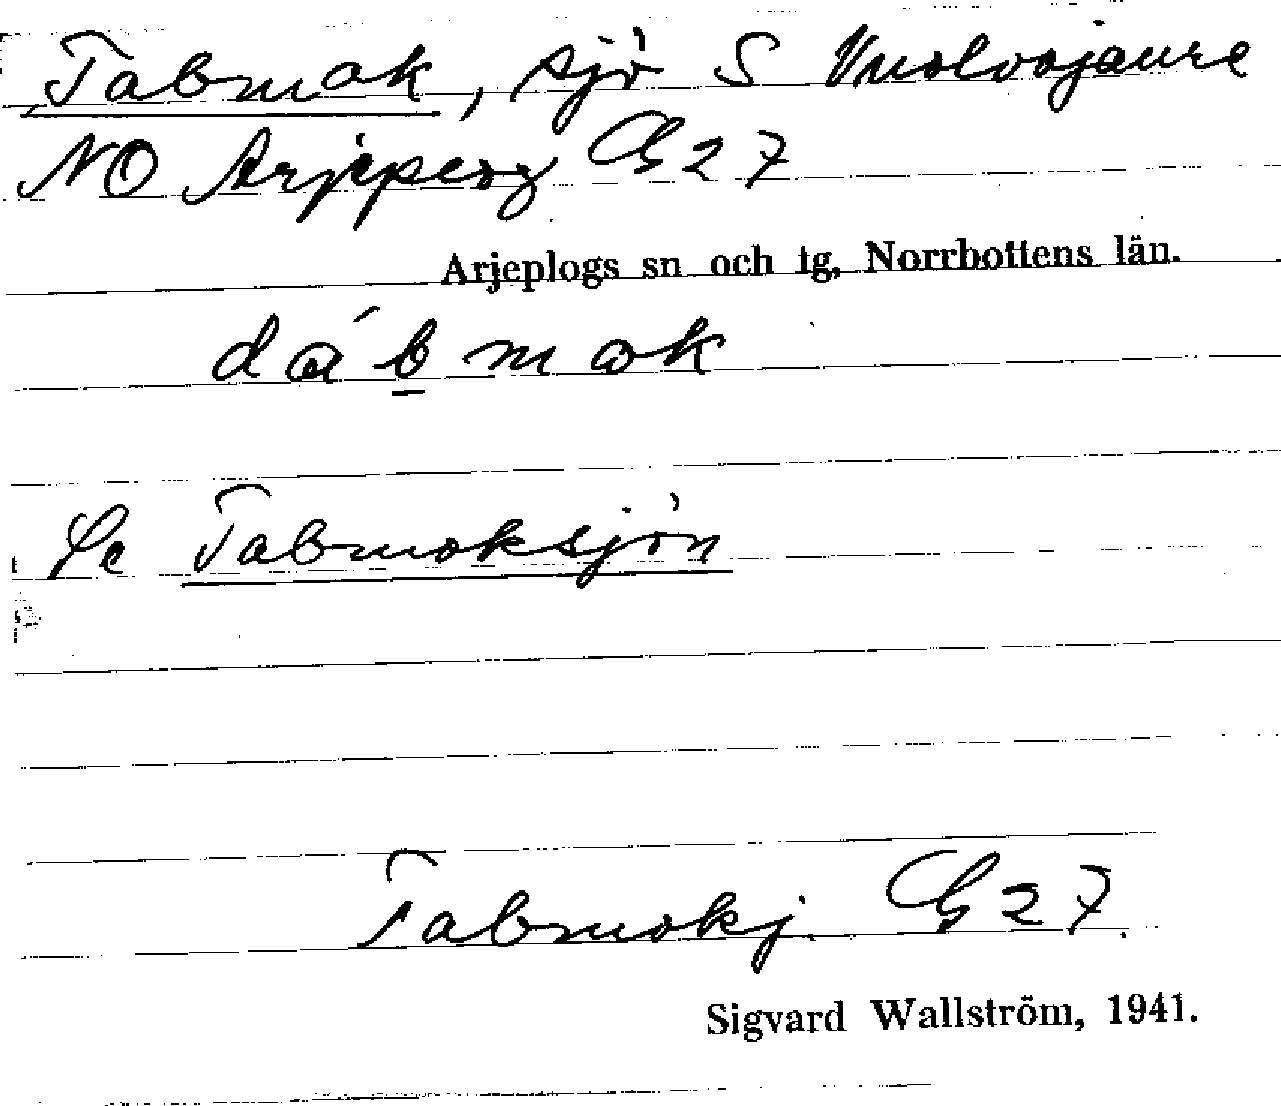 Tabmok, sjö S Vuolvojaure
NO Arjeplog G 27
Arjeplogs sn och tg, Norrbottens län.
dábmok
Se Tabmoksjön
Tabmokj. G 27.
Sigvard Wallström, 1941.